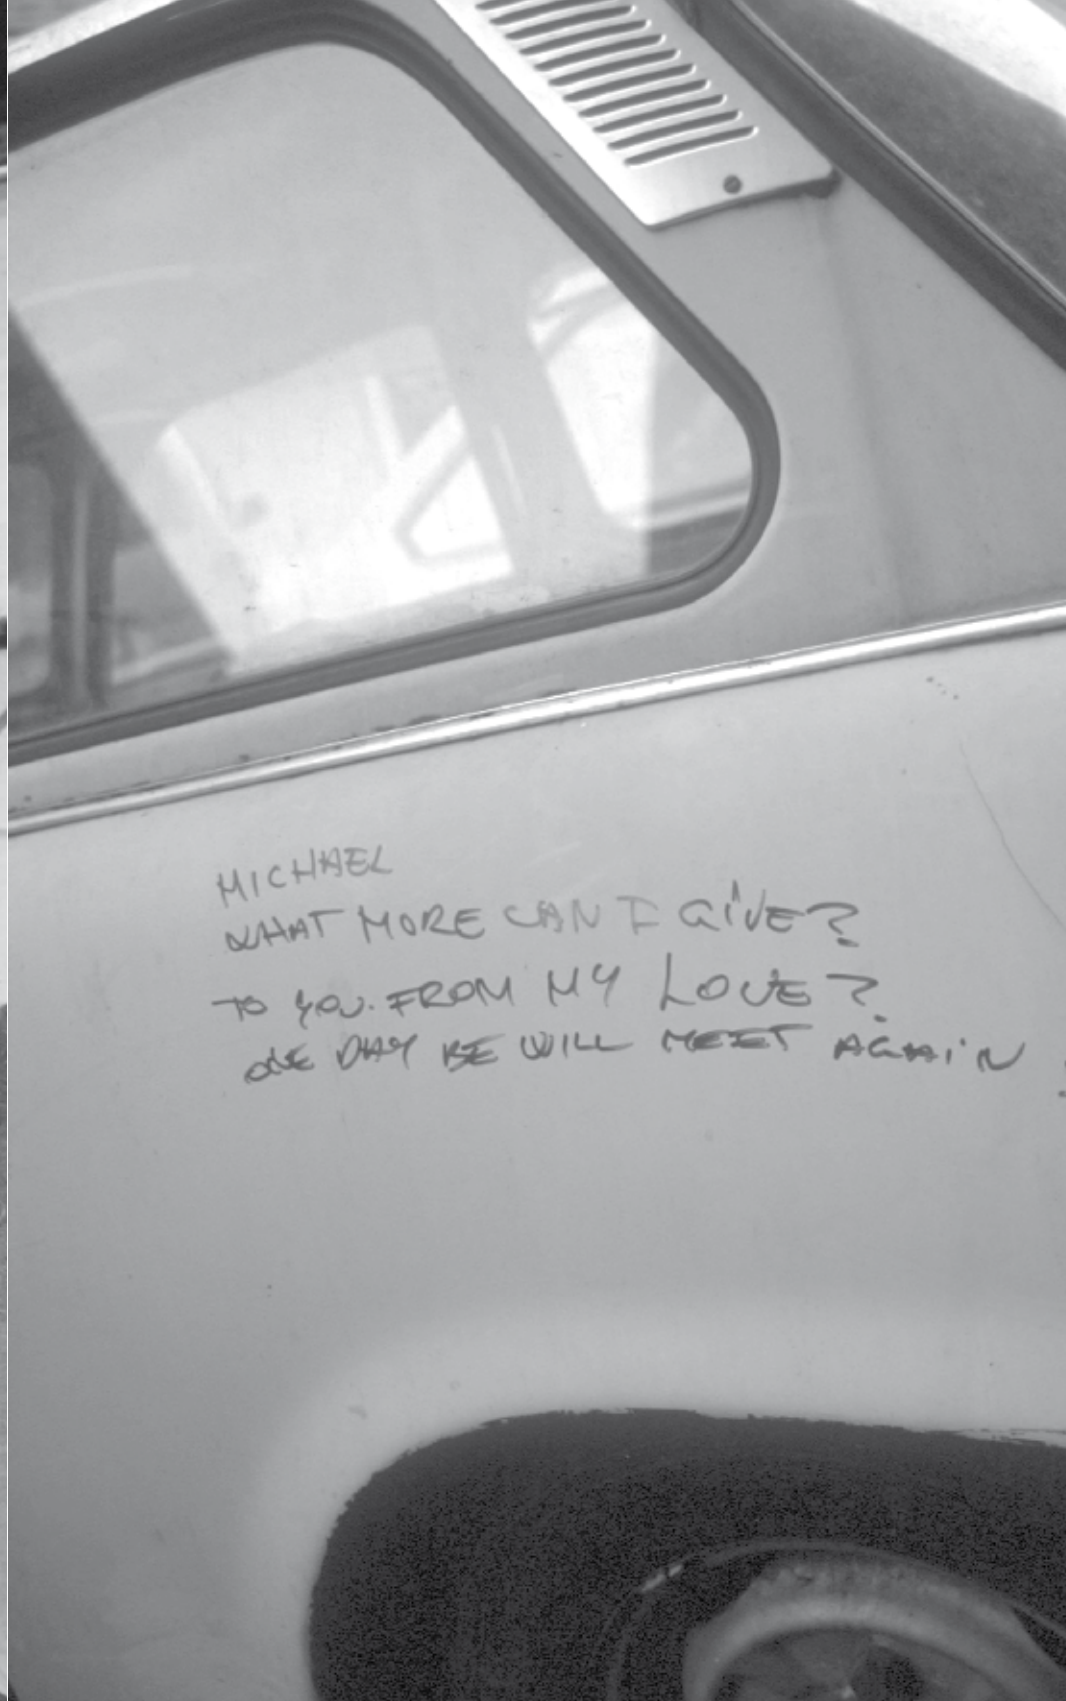 MICHAEL
WHAT MORE CAN I GIVE?
TO YOU. FROM MY LOVE?
ONE DAY BE WILL MEET AGAIN